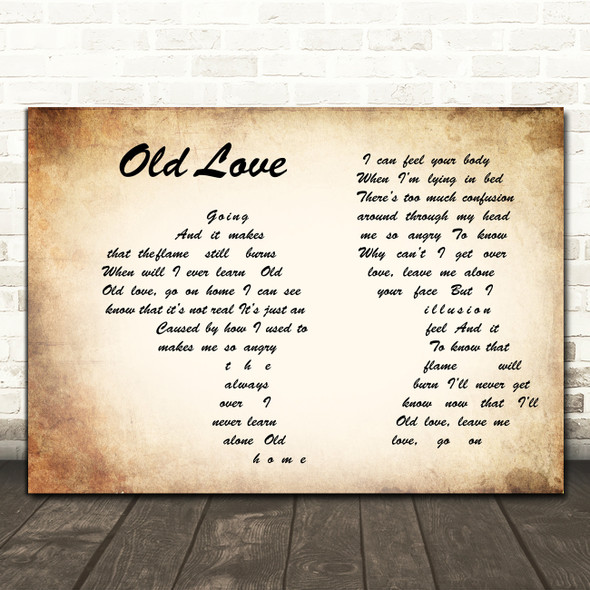 Old Love
Going
And it makes
that theflame still burns
When will I ever learn Old
Old love, go on home I can see
know that it's not real It's just an
Caused by how I used to
makes me so angry
the
always
over I
never learn
alone Old
home
I can feel your body
When I'm lying in bed
There's too much confusion
around through my head
me so angry To know
Why can't I get over
love, leave me alone
your face But I
illusion
feel And it
To know that
flame will
burn I'll never get
know now that I'll
Old love, leave me
love, go on